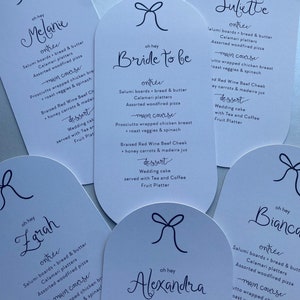 oh hey
Melanie
entree
Salumi boards + bread & butter
Calamari platters
Assorted woodfired pizza
main course
Prosciutto wrapped chicken breast
+ roast veggies & spinach
Braised Red Wine Beef Cheek
+ honey carrots & madeira jus
dessert
Wedding cake
served with Tea and Coffee
Fruit Platter
oh hey
Bride to be
entree
Salumi boards + bread & butter
Calamari platters
Assorted woodfired pizza
main course
Prosciutto wrapped chicken breast
+ roast veggies & spinach
Braised Red Wine Beef Cheek
+ honey carrots & madeira jus
dessert
Wedding cake
served with Tea and Coffee
Fruit Platter
Juliette
entree
Salumi boards + bread & butter
Calamari platters
Assorted woodfired pizza
main course
oh hey
Zarah
entree
Salumi boards + bread & butter
Calamari platters
oh hey
Alexandra
oh hey
Bianca